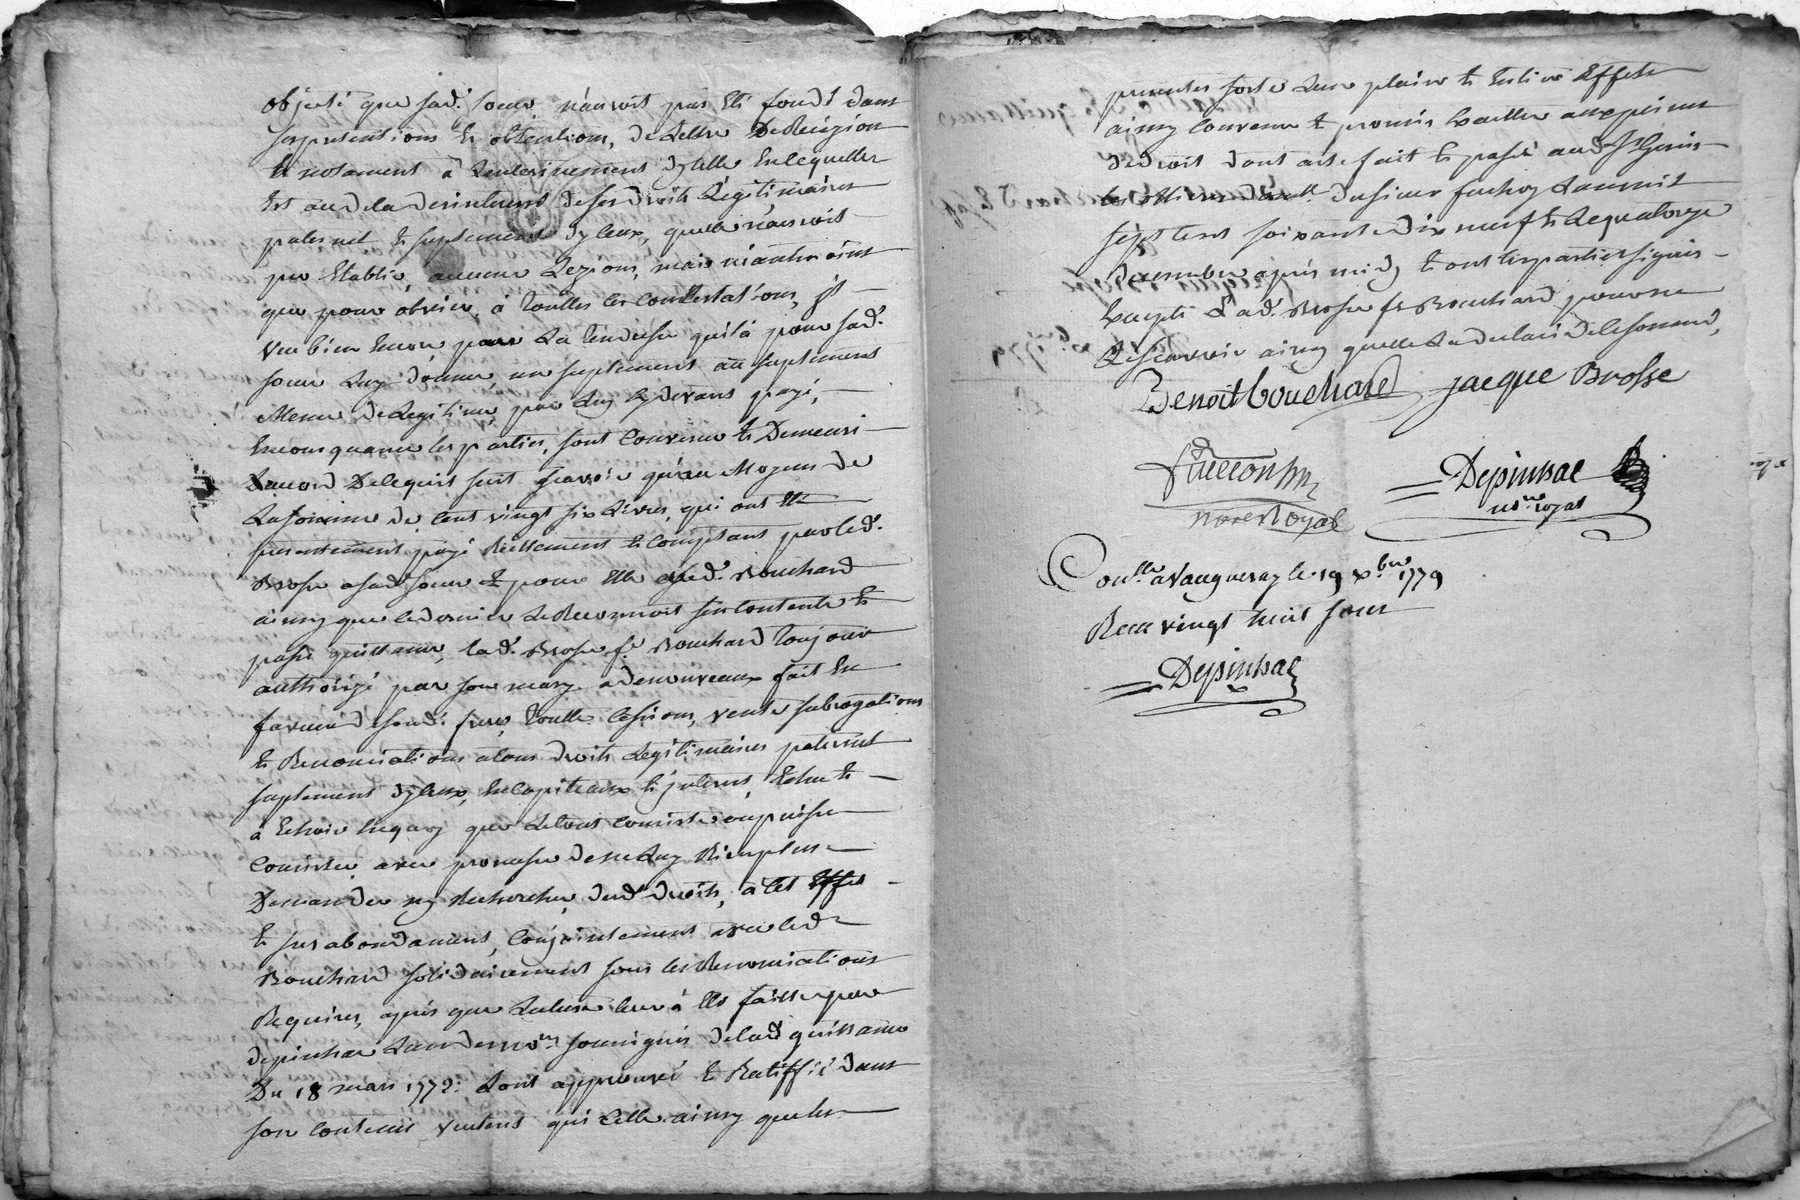 objecté que sad.e soeur n'auroit pas été fondé dans
ses pretentions et obtentions, de Lettre De Recizion
Et notament à L'enterinement d'ycelle En lequelle
Est au dela desistement de ses droits Légitimaires
paternel & suplement d'yceux, quelle n'auroit
peu Etablir, aucune Lezion, mais neantmoins
que pour obvier à touttes ces Contestations, Et
veu bien Encore pour La tendresse quil à pour sad.e
soeur Luy donner, un suplement au suplement
Meme De Legitime par Luy cy devant payé,
En consequance les parties, sont Convenue & Demeuré
D'acord De ce quil suit scavoir qu'au Moyens de
La somme de cent vingt six Livres, qui ont été
presentement payé Réellement & comptant par led.
Brosse a sad.e soeur & pour Elle aud. Bouchard
ainsy que ce dernier Le Reconnoit s'en contente &
passe quittance, lad.e Brosse f.e Bouchard toujours
authorizé par son mary a de nouveaux fait En
faveur d sond. frere, toutte Cession, vente subrogations
& Renonciations a tous droits Legitimaires paternel
suplement d'yceux, En Capiteaux & jnterest, Echu &
à Echoir En quoy que Le tout consiste ou puisse
Consister avec promesse de ne Luy Rien plus
Demander ny Rechercher desd. droits, à Cet Effet
& surabondament, Conjointement avec led.
Bouchard solidairement sous les Renonciations
Requises, apres que Lecture leur à été faitte par
Depinhac L'un des no.res soussignés de lad.e quittance
Du 18 mars 1772: L'ont approuvé & Ratiffié dans
son contenu veulent qui Celle ainsy que les
presentes sorte Leur plaine & Entier Effets
ainsy Convenue & promis Exeller aux peines
de droit dont acte fait & passé aud. St Genis
les Ollieres du sieur L'an mil
sept cent soixante dix neuf & Le quatorze
Decembre après midy & ont les parties signés
Excepté Lad.e Brosse f.e Bouchard pour ne
Le scavoir ainsy quelle La declaré de ce sommé,
Benoit bouchard jacque Brosse
nore Royal
Depinhac
no.re royal
Con.llé a Vaugneray le 19 xbre 1779
Recu vingt huit sous
Depinhac